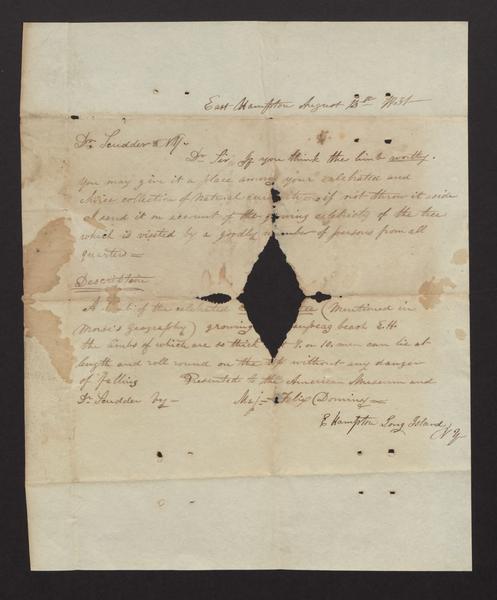 East Hampton August 13th
Dr Scudder
Dr Sir If you think the limb worthy.
you may give it a place among your celebrated and
choice collection of Natural if not throw it aside
I send it on account of the growing celebrity of the tree
which is visited by a goodly number of persons from all
quarters =
Description
A limb of the celebrated tree (Mentioned in
Morse's geography) growing beach E.H
the limbs of which are so thick that 8. or 10. men can lie at
length and roll round on the top without any danger
of falling Presented to the American Museum and
Dr Scudder by - Maj = Felix Dominy =
E Hampton Long Island
N Y